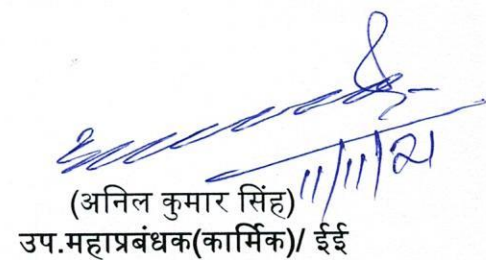 11/11/21
(अनिल कुमार सिंह)
उप.महाप्रबंधक(कार्मिक)/ ईई